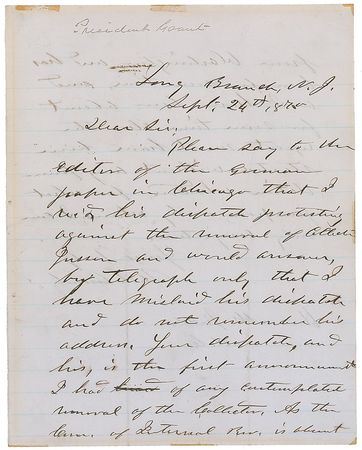 President Grant
Long Branch, N. J.
Sept. 24th, 1870
Dear Sir:
Please say to the
editor of the German
paper in Chicago that I
rec'd his dispatch protesting
against the removal of Collector
and would answer,
by telegraph only that I
have mislaid his dispatch
and do not remember his
address. Your dispatch, and
his, is the first announcement
I had heard of any contemplated
removal of the Collector. As the
Com. of Internal Rev. is about